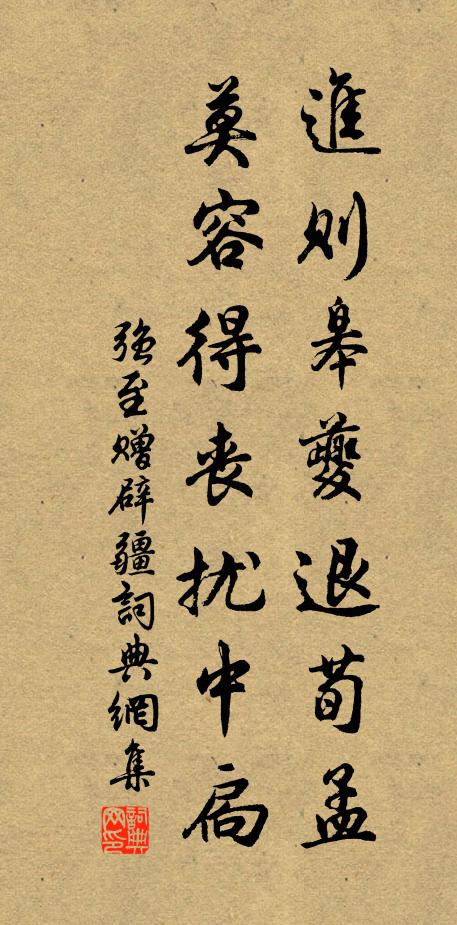 進則皋夔退荀孟
莫容得丧扰中扃
强至赠辟疆詞典網集
詞典網印